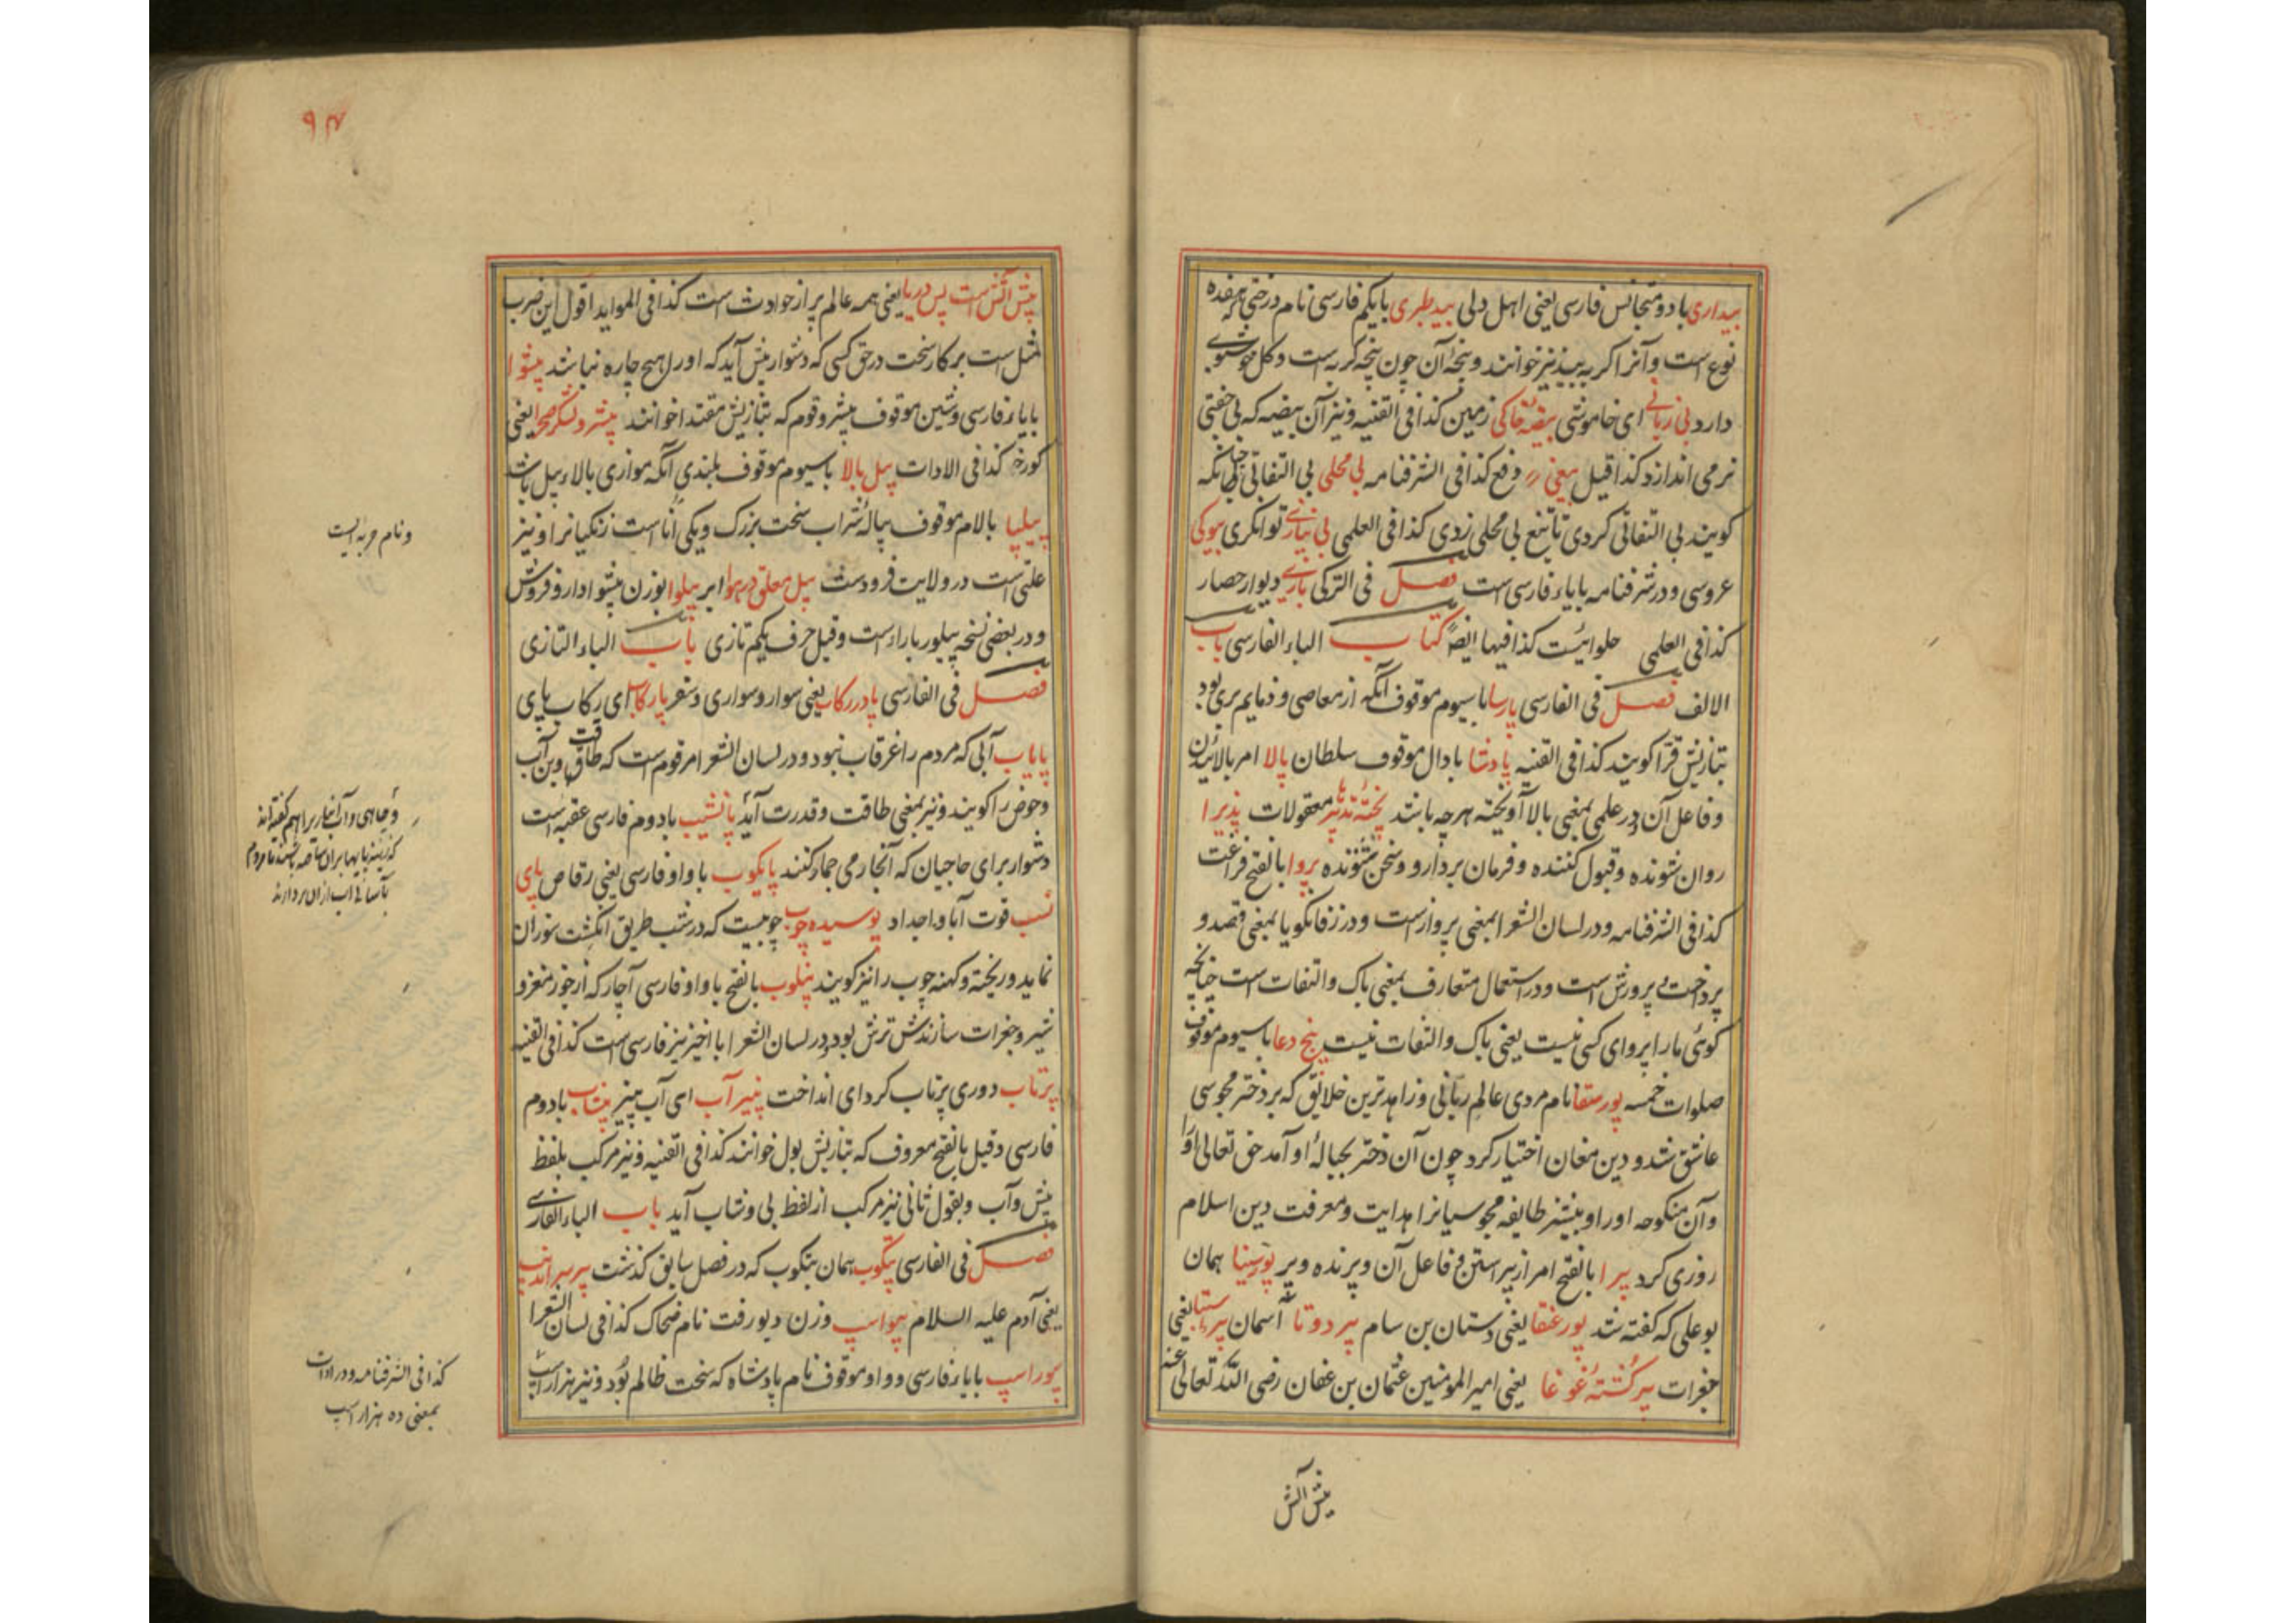 بیداری با دو متجانس فارسی یعنی اهل دلی بید طبری با یکم فارسی نام درختی که هفده
نوع است و آنرا گربه بید نیز خوانند و پنجهٔ آن چون پنجه گربه است و کل خوشبوی
دارد بی زبانی ای خاموشی بیضهٔ خاکی زمین کذا فی القنیه و نیز آن بیضه که بی جفتی
نرمی اندازد کذا قیل بیغی وقع کذا فی الشرفنامه بی محلی بی التفاتی چنانکه
کویند بی التفاتی کردی تا تیغ بی محلی زدی کذا فی العلمی بی نیازی توانکری بیوکی
عروسی و در شرفنامه بابای فارسی است فصل فی الترکی باری دیوار حصار
کذا فی العلمی حلوائیست کذا فیها ایضاً کتاب الباء الفارسی باب
الالف فصل فی الفارسی پارسا با سیوم موقوف آنکه از معاصی و ذمایم بری بود
بتازیش قرا کویند کذا فی القنیه پادشا با دال موقوف سلطان پالا امر بالائیدن
و فاعل آن و در علمی بمعنی بالا آویخته هرچه باشد پختهٔ تدبیر معقولات پذیرا
روان شونده و قبول کننده و فرمان بردار و سخن شنونده پروا بالفتح فراغت
کذا فی الشرفنامه و در لسان الشعرا بمعنی پرواز است و در زفانکویا بمعنی قصد و
پرداخت و پرورش است و در استعمال متعارف بمعنی باک و التفات است چنانچه
کوئی ما را پروای کسی نیست یعنی باک و التفات نیست پنج دعا با سیوم موقوف
صلوات خمسه پورسقا نام مردی عالم ربانی و زاهدترین خلایق که بر دختر مجوسی
عاشق شد و دین مغان اختیار کرد چون آن دختر بحبالهٔ او آمد حق تعالی او را
و آن منکوحه او را و بیشتر طایفه مجوسیانرا هدایت و معرفت دین اسلام
روزی کرد پیرا بالفتح امر از پیراستن و فاعل آن و پرنده و پر پورسینا همان
بوعلی که کفته شد پور عنقا یعنی دستان بن سام پیر دوتا آسمان یعنی
جغرات پیر کشتهٔ غوغا یعنی امیرالمومنین عثمان بن عفان رضی الله تعالی عنه
پیش آتش
۹۴
پیش آتش است پس دریا یعنی همه عالم پر از حوادث است کذا فی الموائد اقول این ضرب
مثل است بر کار سخت در حق کسی که دشوار پیش آید که او را هیچ چاره نباشد پیشوا
بابای فارسی و شین موقوف پیشرو قوم که بتازیش مقتدا خوانند پیشرو لشکر صحرا یعنی
کورخر کذا فی الادات پیل بالا با سیوم موقوف بلندی آنکه موازی بالاء پیل باشد
پیلپا بالام موقوف پیالهٔ شراب سخت بزرک و یکی آناست زنکیانرا و نیز
علتی است در ولایت فرودست پیل معلق در هوا ابر پیلوا بوزن پیشوا دارو فروش
و در بعضی نسخه پیلور با را است و قیل حرف یکم تازی باب الباء التازی
فصل فی الفارسی پا در رکاب یعنی سوار و سواری و سفر ای رکاب پای
پایاب آبی که مردم را غرقاب نبود و در لسان الشعرا مرقوم است که طاقت و بن آب
و حوض را کویند و نیز بمعنی طاقت و قدرت آید پاشیب با دوم فارسی عقبه است
دشوار برای حاجیان که آنجا رمی جمار کنند پایکوب با واو فارسی یعنی رقاص پای
نسب قوت آبا و اجداد پوسیده چوب چوبیست که در شب طریق انکشت سوزان
نماید و ریخته و کهنه چوب را نیز کویند پنلوب بالفتح با واو فارسی آچار که از جوز مغز و
شیر و جغرات سازندش ترش بود و در لسان الشعرا با اخیر نیز فارسی است کذا فی القنیه
پرتاب دوری پرتاب کرد ای انداخت پنیر آب ای آب پنیر پیشاب با دوم
فارسی و قیل بالفتح معروف که بتازیش بول خوانند کذا فی القنیه و نیز مرکب بلفظ
پیش و آب و بقول ثانی نیز مرکب از لفظ بی و شاب آید باب الباء الفارسی
فصل فی الفارسی پتکوب همان بتکوب که در فصل سابق کذشت پیر سراندیب
یعنی آدم علیه السلام پیواسپ وزن دیو رفت نام ضحاک کذا فی لسان الشعرا
پیوراسپ بابای فارسی و واو موقوف نام پادشاه که سخت ظالم بود و نیز هزار اسپ
و نام حربه ایست
و چاهی و آب انبار را هم کفته اند
که زینه پایها بران ساخته باشند تا مردم
بآسانی آب ازان بردارند
کذا فی الشرفنامه و در ادات
بمعنی ده هزار اسپ